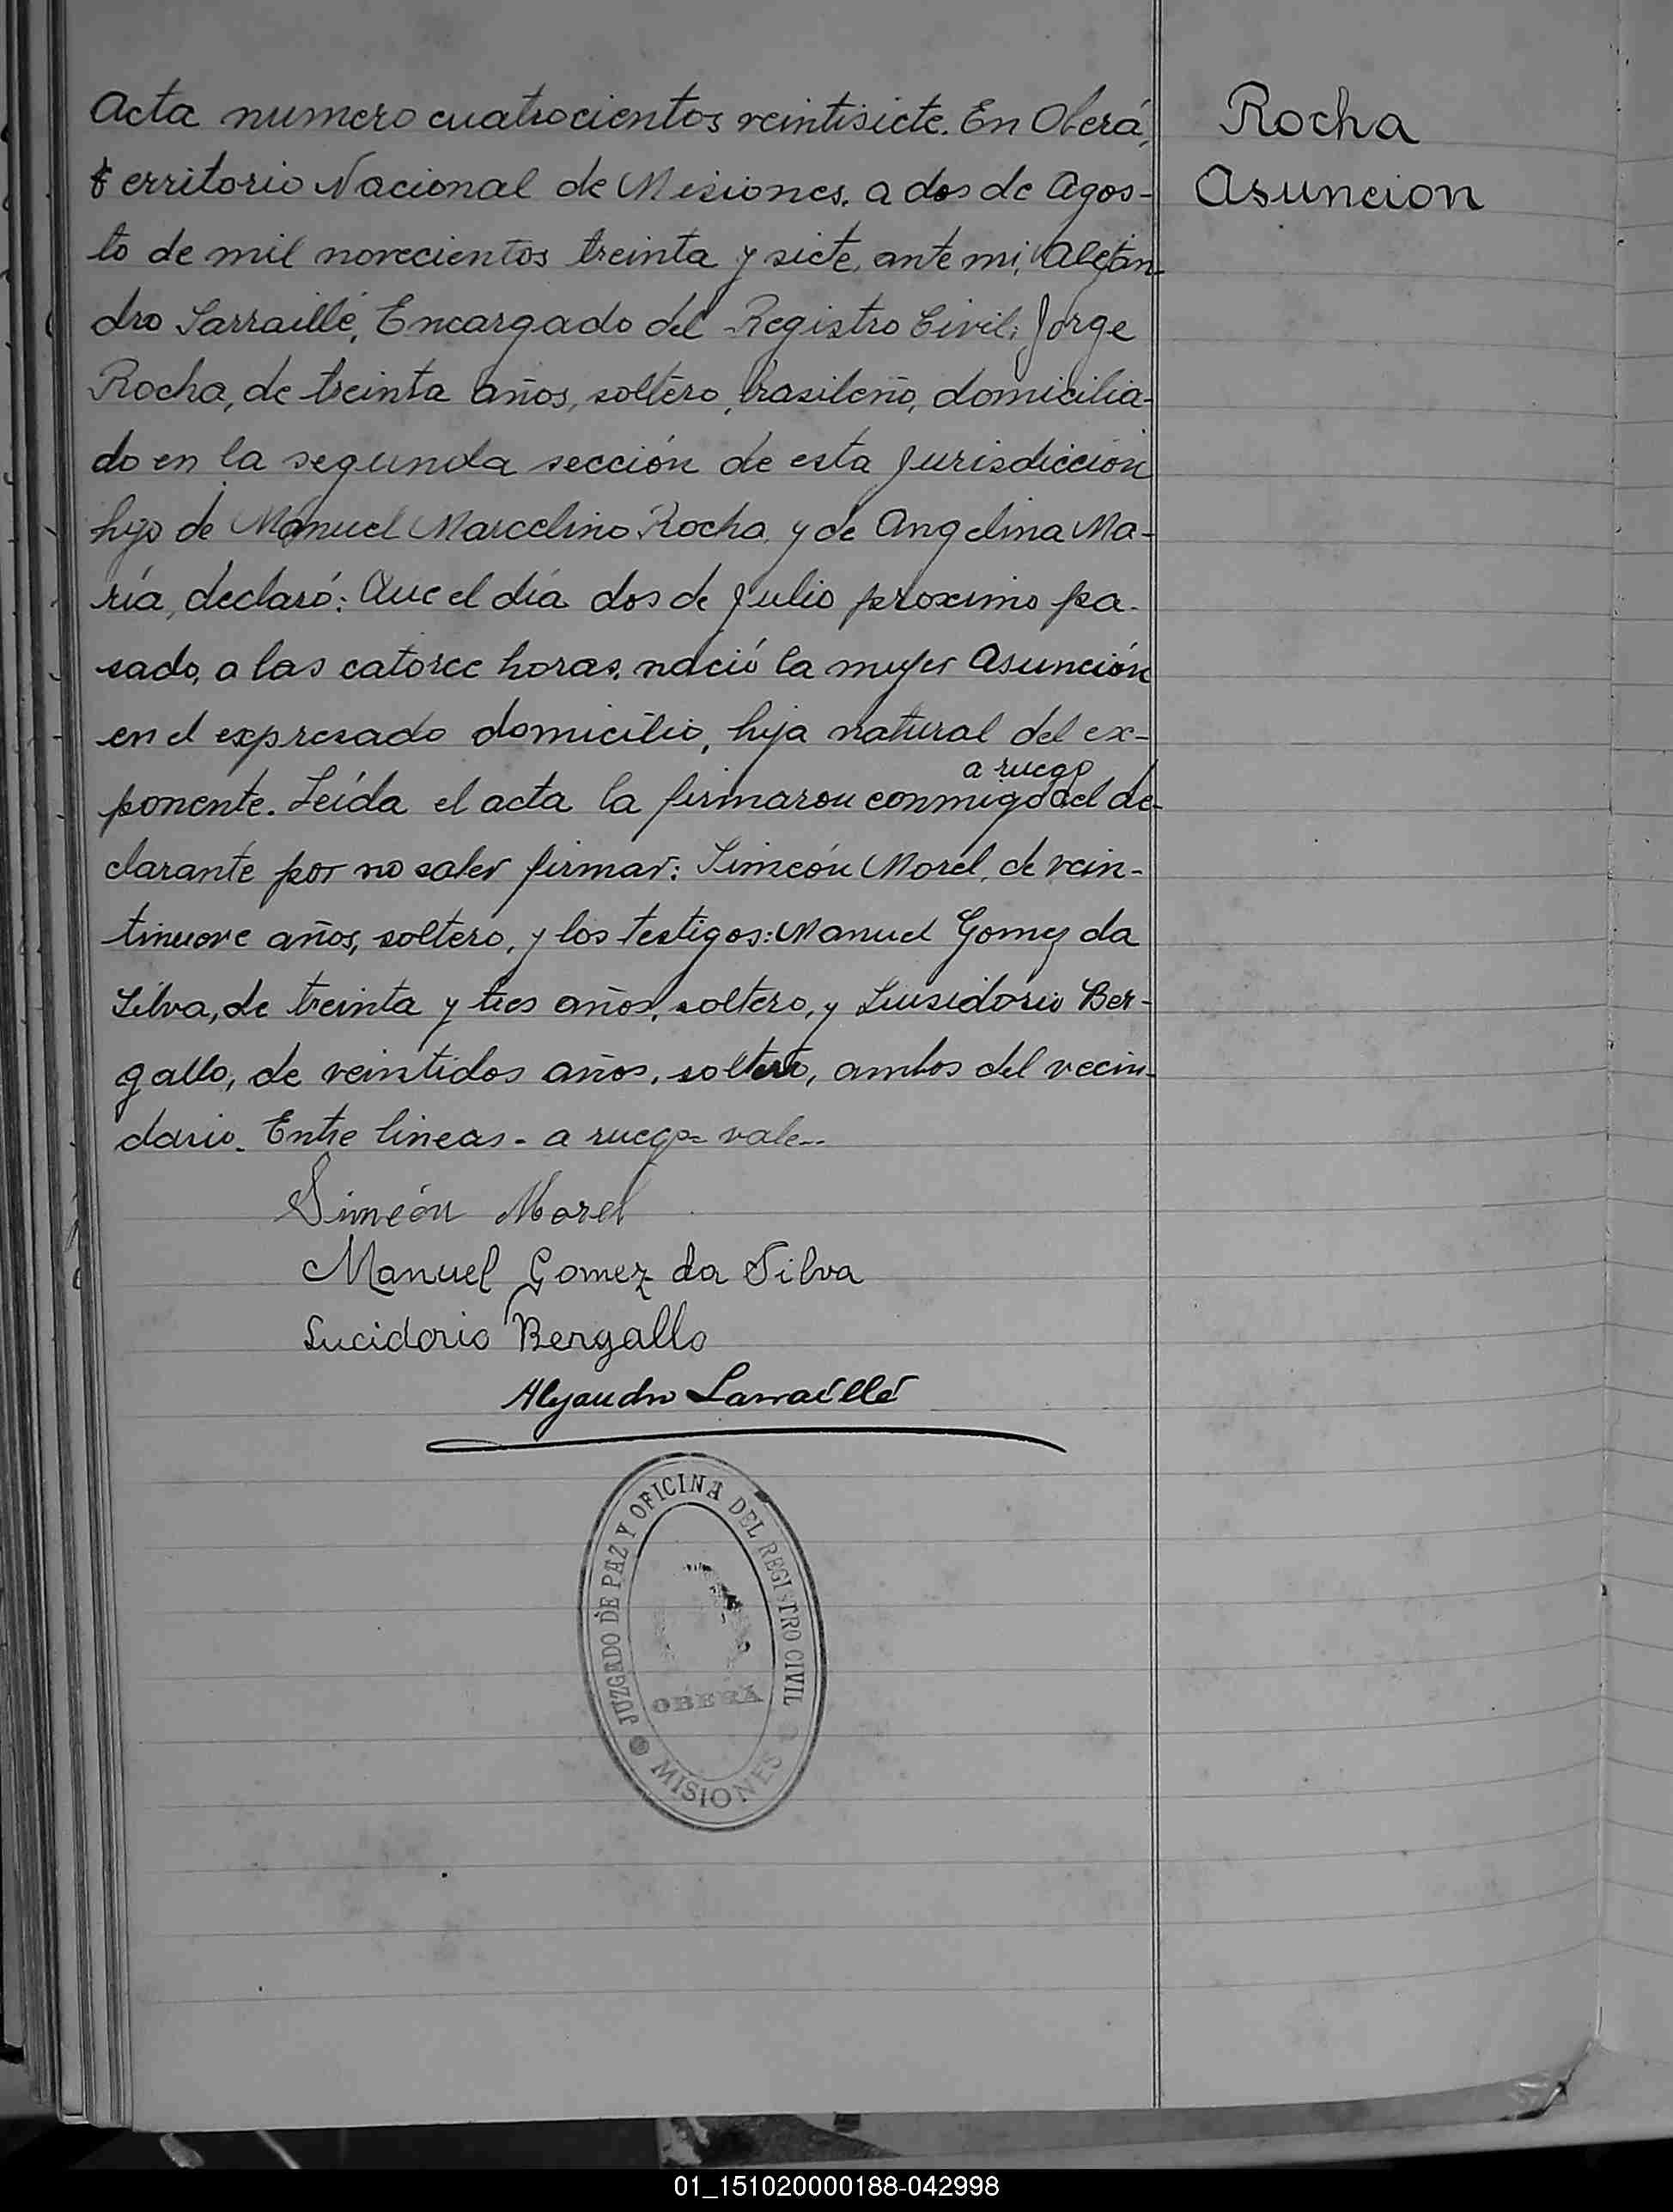 Acta numero cuatrocientos veintisiete. En Oberá,
territorio Nacional de Misiones, a dos de Agos-
to de mil novecientos treinta y siete, ante mi, Alejan-
dro Larraillé, Encargado del Registro Civil; Jorge
Rocha, de treinta años, soltero, brasileño, domicilia-
do en la segunda sección de esta jurisdiccion
hijo de Manuel Marcelino Rocha, y de Angelina Ma-
ría, declaró: Que el día dos de Julio proximo pa-
sado, a las catorce horas, nació la mujer Asunción
en el expresado domicilio, hija natural del ex-
a ruego
ponente. Leída el acta la firmaron conmigo del de-
clarante por no saber firmar: Simeón Morel, de vein-
tinueve años, soltero, y los testigos: Manuel Gomez da
Silva, de treinta y tres años, soltero, y Liusidorio Ber-
gallo, de veintidos años, soltero, ambos del vecin-
dario. Entre lineas - a ruego - vale--
Simeón Morel
Manuel Gomez da Silva
Lucidorio Bergallo
Alejandro Larraillé
JUZGADO DE PAZ Y OFICINA DEL REGISTRO CIVIL
OBERÁ
MISIONES
Rocha
Asuncion
01_151020000188-042998